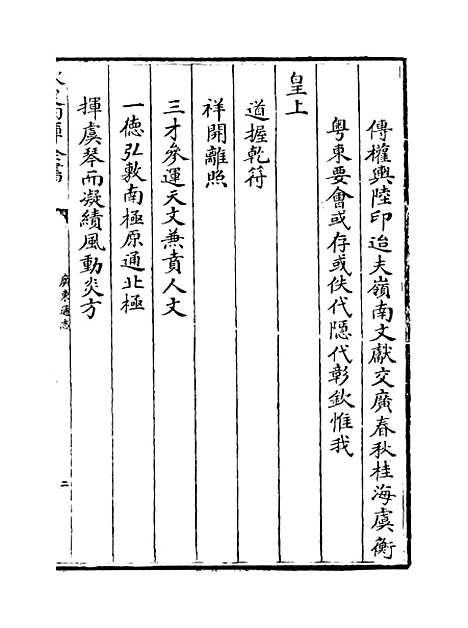 傳權輿陸印迨夫嶺南文獻交廣春秋桂海虞衡
粤東要會或存或佚代隱代彰欽惟我
皇上
道握乾符
祥開離照
三才參運天文兼賁人文
一德弘敷南極原通北極
揮虞琴而凝績風動炎方
廣東通志
二